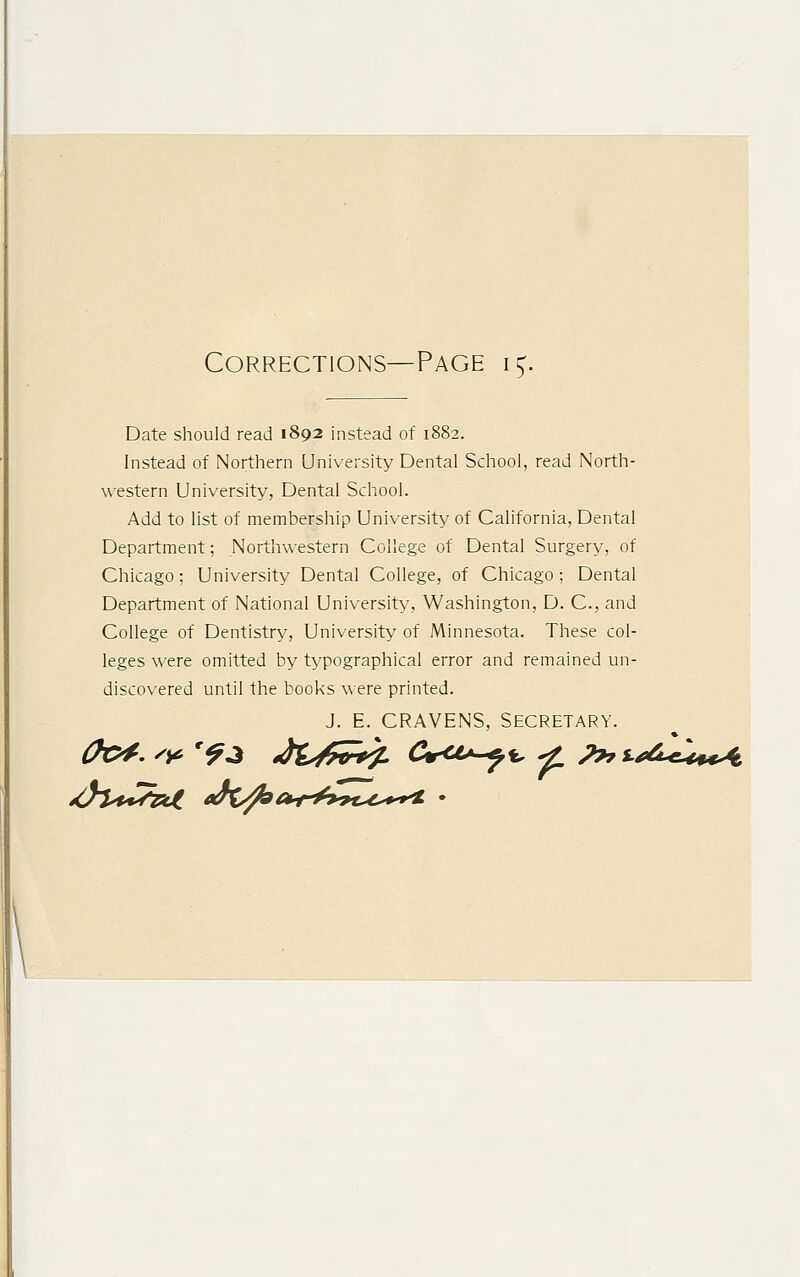 CORRECTIONS—PAGE 15.
Date should read 1892 instead of 1882.
Instead of Northern University Dental School, read North-
western University, Dental School.
Add to list of membership University of California, Dental
Department; Northwestern College of Dental Surgery, of
Chicago; University Dental College, of Chicago; Dental
Department of National University, Washington, D. C., and
College of Dentistry, University of Minnesota. These col-
leges were omitted by typographical error and remained un-
discovered until the books were printed.
J. E. CRAVENS, SECRETARY.
Oct. '93 College of
Dental Department.